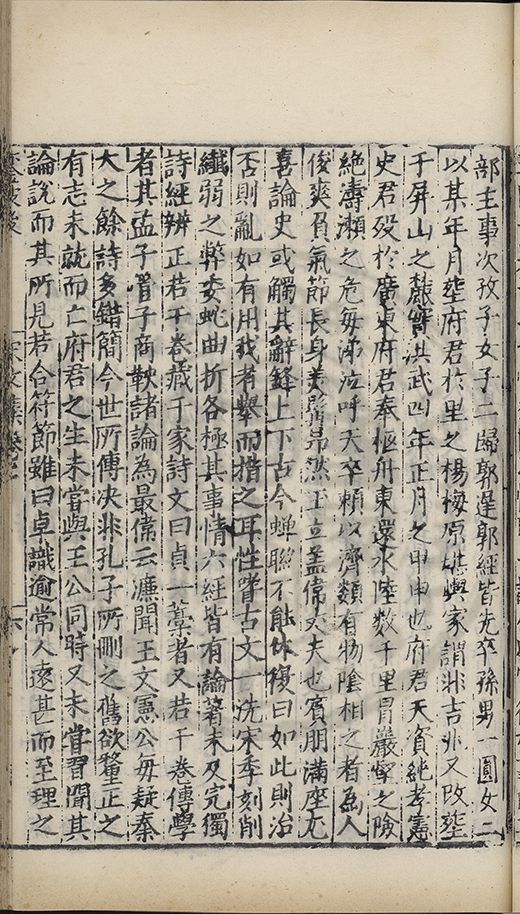 部主事次孜子女子二歸郭逢郭經皆先卒孫男一圓女二
以某年月塟府君於里之楊梅原堪輿家謂非吉兆又改塟
于屏山之麓實洪武四年正月之甲申也府君天資純孝憲
史君歿於廣東府君奉柩舟東還水陸數千里冒嚴壑之險
絶濤瀬之危毎涕泣呼天卒頼以濟類有物隂相之者為人
俊爽負氣節長身美髯昂然玉立盖偉丈夫也賓朋滿座尤
喜論史或觸其辭鋒上下古今蝉聯不能休復曰如此則治
否則亂如有用我者舉而措之耳性嘗古文一洗宋季刻削
纖弱之弊委蛇曲折各極其事情六經皆有論著未及完獨
詩經辨正若干巻藏于家詩文曰貞一藁者又若干巻傳學
者其孟子管子商鞅諸論為最偹云濂聞王文憲公毎疑秦
大之餘詩多錯簡今世所傳决非孔子所刪之舊欲釐正之
有志未就而亡府君之生未嘗與王公同時又未嘗習聞其
論說而其所見若合符節雖曰卓識逾常人逺甚而至理之